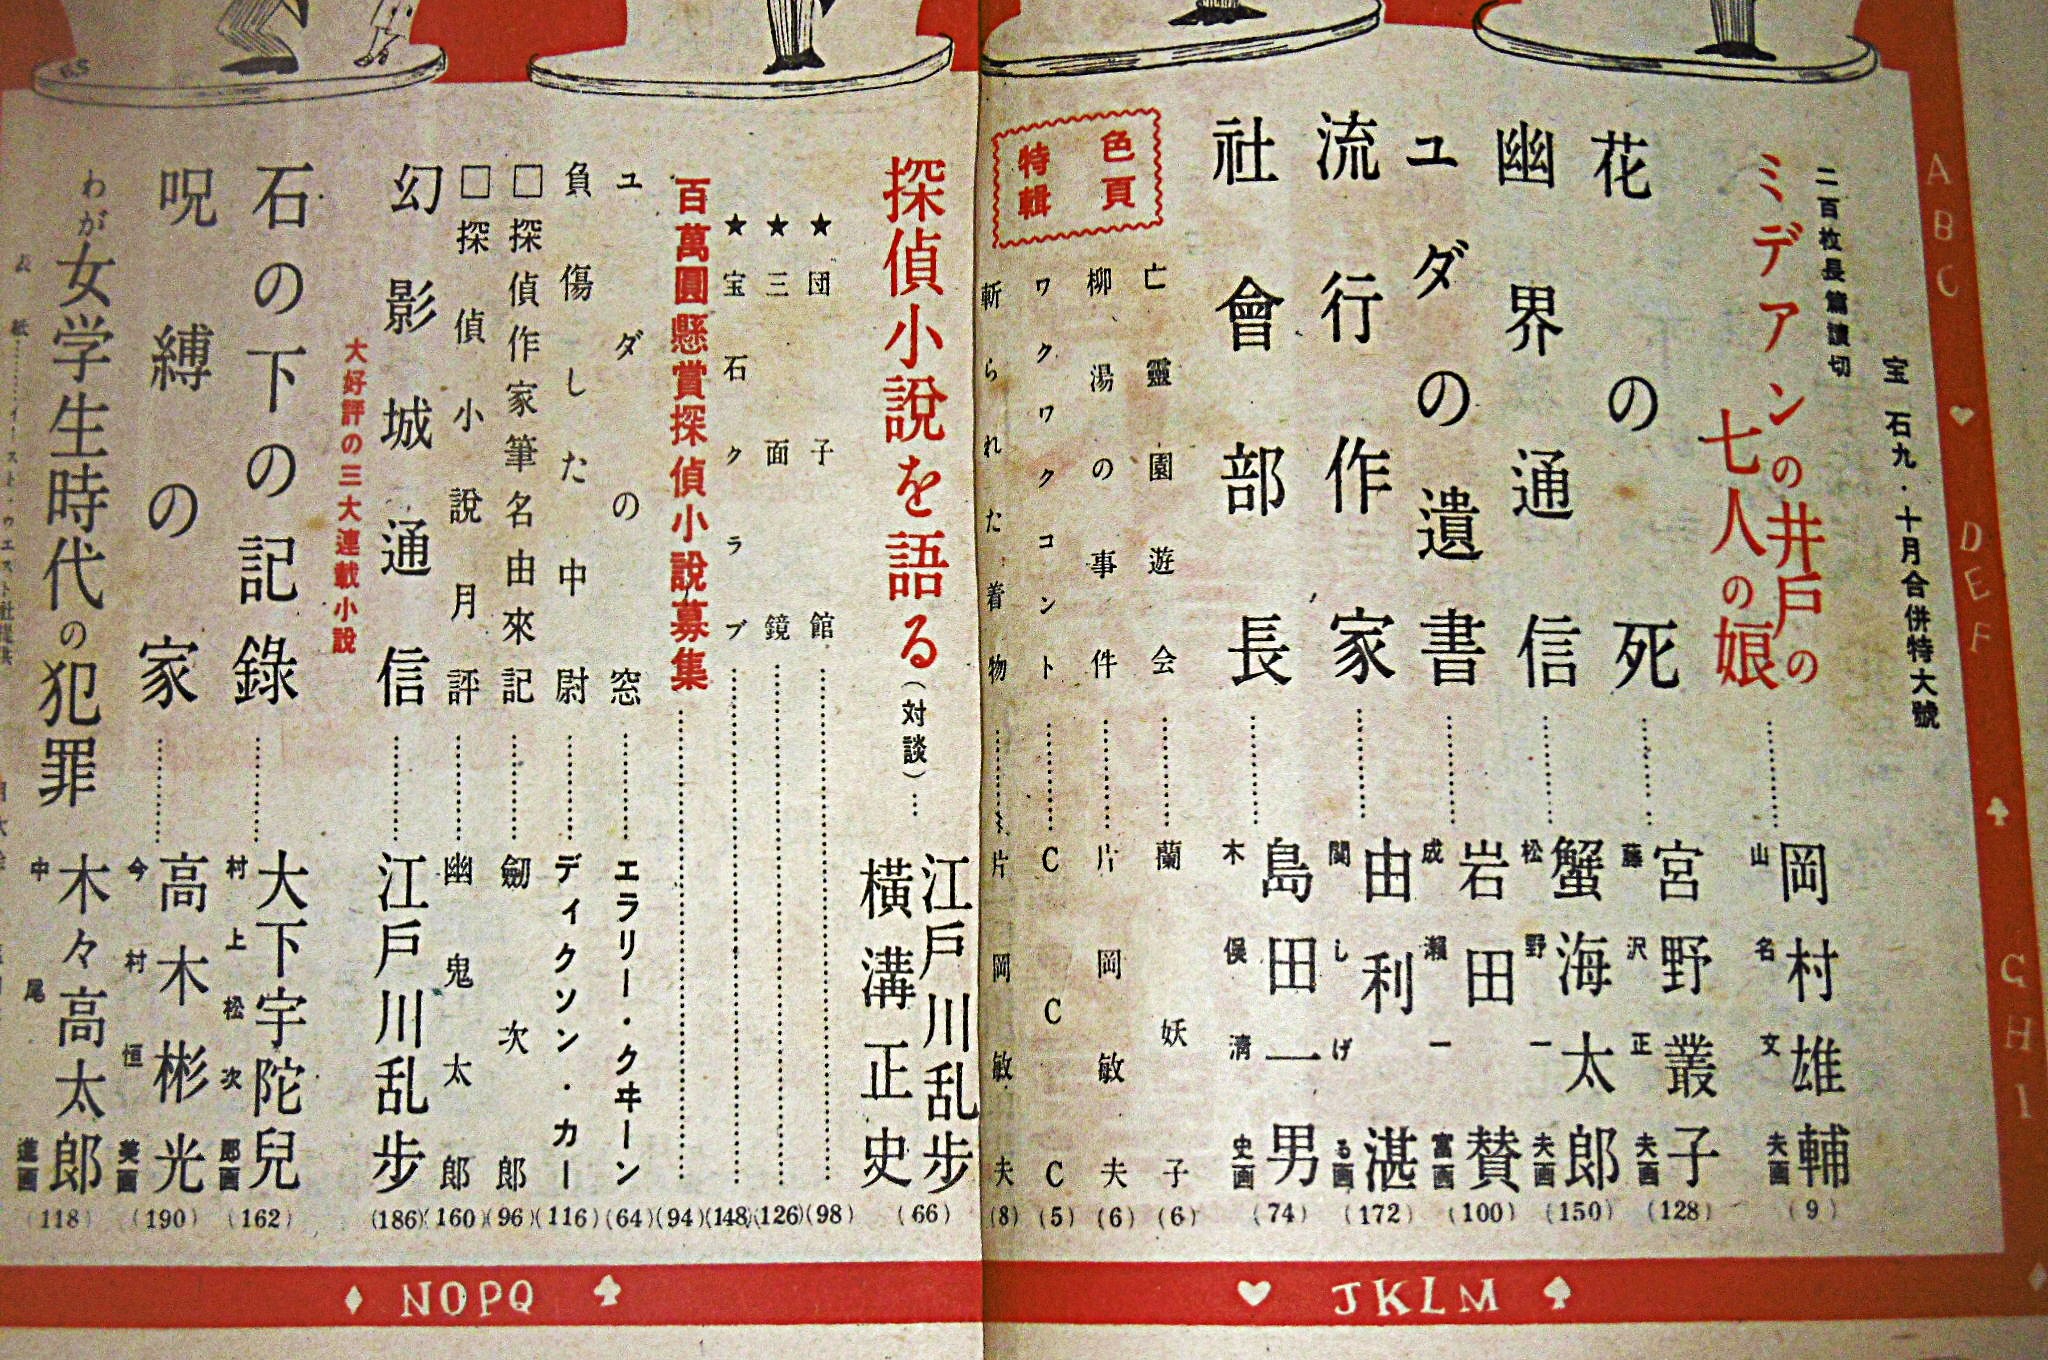 宝石九・十月合併特大號
二百枚長篇讀切
ミデアンの井戸の
七人の娘……岡村雄輔 山名文夫画 (9)
花の死……宮野叢子 藤沢正夫画 (128)
幽界通信……蟹海太郎 松野一夫画 (150)
ユダの遺書……岩田賛 成瀬一富画 (100)
流行作家……由利湛 関しげる画 (172)
社會部長……島田一男 木俣清史画 (74)
色頁
特輯
亡靈園遊会……蘭妖子 (6)
柳湯の事件……片岡敏夫 (6)
ワクワクコント……CCC (5)
斬られた着物……片岡敏夫 (8)
探偵小説を語る(対談)…江戸川乱歩 横溝正史 (66)
★団子館……(98)
★三面鏡……(126)
★宝石クラブ……(148)
百萬圓懸賞探偵小説募集……(94)
ユダの窓……エラリー・クヰーン (64)
負傷した中尉……ディクソン・カー (116)
□探偵作家筆名由來記……劒次郎 (96)
□探偵小説月評……幽鬼太郎 (160)
幻影城通信……江戸川乱歩 (186)
大好評の三大連載小説
石の下の記錄……大下宇陀兒 村上松次郎画 (162)
呪縛の家……高木彬光 今村恒美画 (190)
わが女学生時代の犯罪 木々高太郎 中尾進画 (118)
表紙……イースト・ウエスト社提供
ABC DEF GHI
JKLM
NOPQ